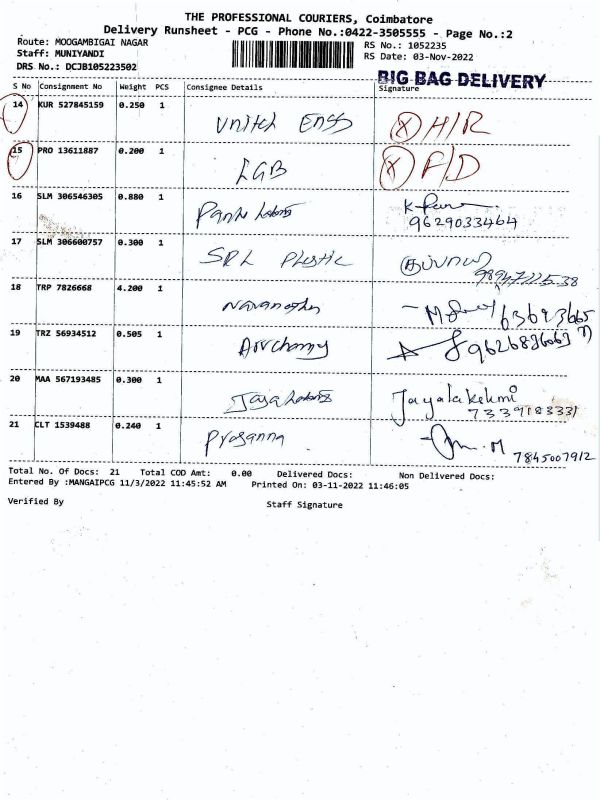 THE PROFESSIONAL COURIERS, Coimbatore
Delivery Runsheet - PCG - Phone No.:0422-3505555 - Page No.:2
Route: MOOGAMBIGAI NAGAR
Staff: MUNIYANDI
DRS No.: DCJB105223502
RS No.: 1052235
RS Date: 03-Nov-2022
BIG BAG DELIVERY
S No Consignment No Weight PCS Consignee Details Signature
14 KUR 527845159 0.250 1
United Enggs H/R
15 PRO 13611887 0.200 1
LGB F/D
16 SLM 306546305 0.880 1
9629033464
17 SLM 306600757 0.300 1
SRL Plastic
18 TRP 7826668 4.200 1
19 TRZ 56934512 0.505 1
20 MAA 567193485 0.300 1
Jayalakshmi
7339183331
21 CLT 1539488 0.240 1
Prasanna M
7845007912
Total No. Of Docs: 21 Total COD Amt: 0.00 Delivered Docs: Non Delivered Docs:
Entered By :MANGAIPCG 11/3/2022 11:45:52 AM Printed On: 03-11-2022 11:46:05
Verified By Staff Signature